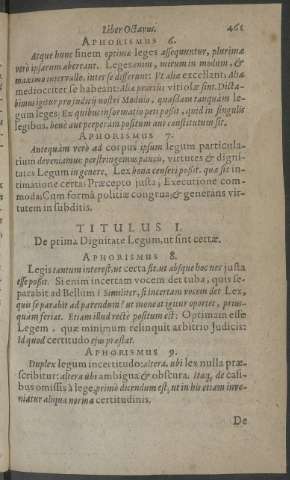 Liber Octavus. 461
APHORISMUS 6.
Atque hunc finem optimæ leges assequentur, plurimæ
verò ipsarum aberrant. Leges enim, mirum in modum, &
maximo intervallo, inter se differunt; Ut aliæ excellant; Aliæ
mediocriter se habeant; Aliæ prorsus vitiosæ sint. Dicta-
bimus igitur pro judicij nostri Modulo, quasdam tanquàm le-
gum leges; Ex quibus informatio peti possit, quid in singulis
legibus, benè aut perperàm positum aut constitutum sit.
APHORISMUS 7.
Antequàm verò ad corpus ipsum legum particula-
rium deveniamus; perstringemus paucis, virtutes & digni-
tates Legum in genere. Lex bona censeri possit, quæ sit in-
timatione certa; Præcepto justa; Executione com-
moda; Cum formâ politiæ congrua; & generans vir-
tutem in subditis.
TITULUS I.
De prima Dignitate Legum, ut sint certæ.
APHORISMUS 8.
Legis tantum interest, ut certa sit, ut absque hoc nec justa
esse possit. Si enim incertam vocem det tuba, quis se-
parabit ad Bellum? Similiter, si incertam vocem det Lex,
quis se parabit ad parendum? ut moneat igitur oportet, prius-
quàm feriat. Etiam illud rectè positum est; Optimam esse
Legem, quæ minimum relinquit arbitrio Judicis:
Id quod certitudo ejus præstat.
APHORISMUS 9.
Duplex legum incertitudo: altera, ubi lex nulla præ-
scribitur: altera ubi ambigua & obscura. Itaq; de casi-
bus omissis à lege, primò dicendum est, ut in his etiam inve-
niatur aliqua norma certitudinis.
De